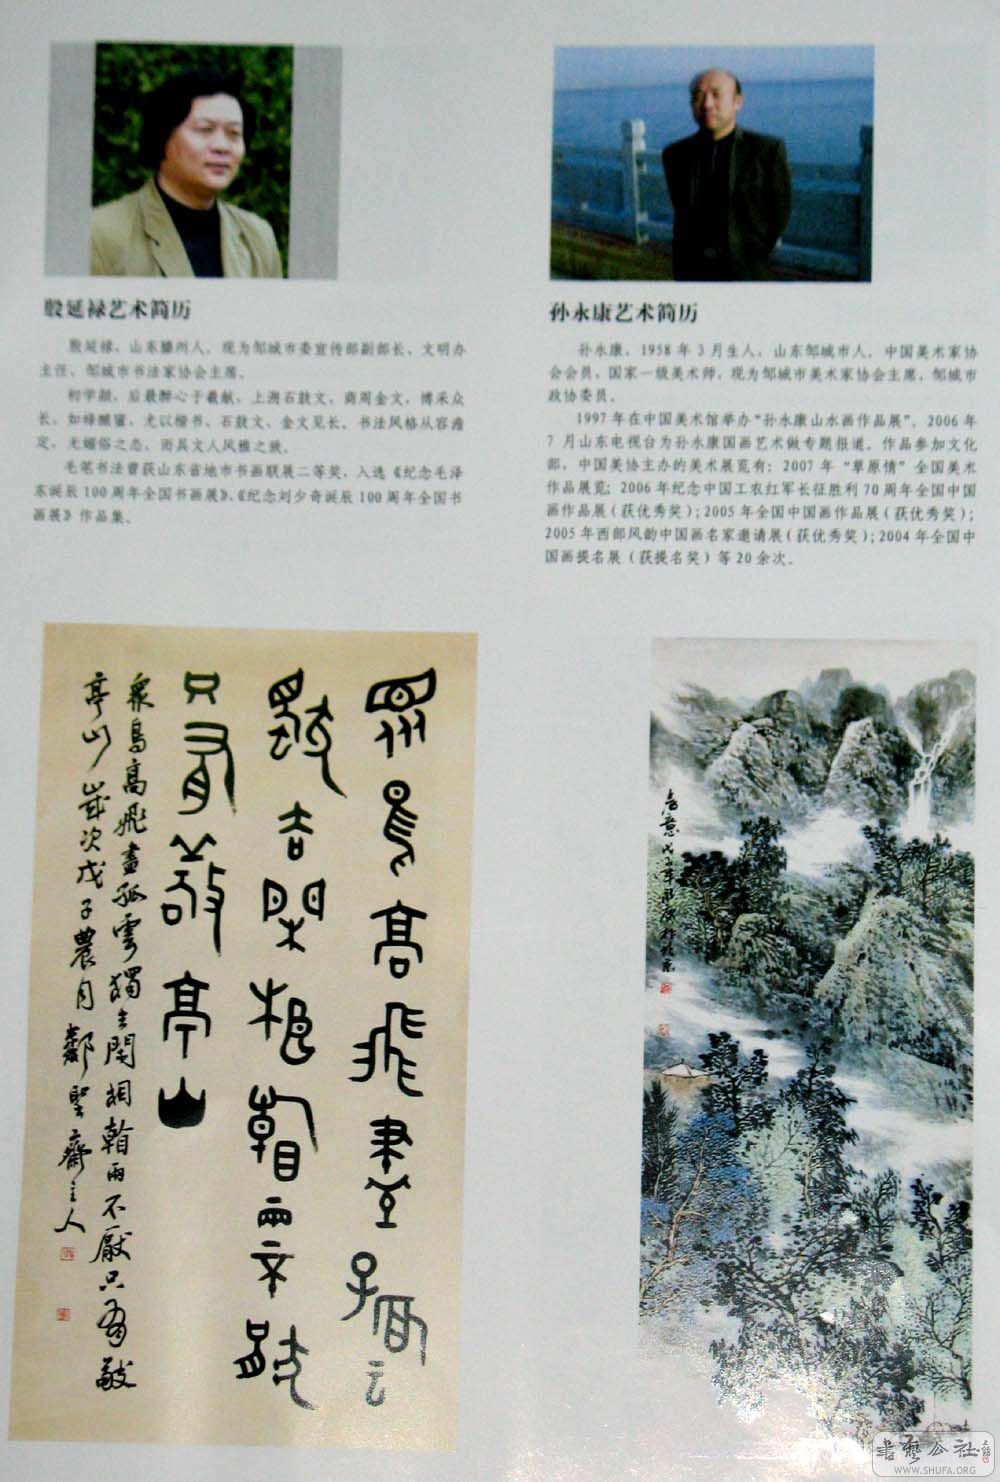 殷延禄艺术简历
殷延禄，山东滕州人，现为邹城市委宣传部副部长、文明办
主任，邹城市书法家协会主席。
初学颜，后最醉心于羲献，上溯石鼓文，商周金文，博采众
长，如蜂酿蜜，尤以楷书、石鼓文、金文见长。书法风格从容澹
定，无媚俗之态，而具文人风雅之致。
毛笔书法曾获山东省地市书画联展二等奖，入选《纪念毛泽
东诞辰100周年全国书画展》、《纪念刘少奇诞辰100周年全国书
画展》作品集。
孙永康艺术简历
孙永康，1958年3月生人，山东邹城市人，中国美术家协
会会员，国家一级美术师，现为邹城市美术家协会主席，邹城市
政协委员。
1997年在中国美术馆举办“孙永康山水画作品展”，2006年
7月山东电视台为孙永康国画艺术做专题报道。作品参加文化
部，中国美协主办的美术展览有：2007年“草原情”全国美术
作品展览；2006年纪念中国工农红军长征胜利70周年全国中国
画作品展（获优秀奖）；2005年全国中国画作品展（获优秀奖）；
2005年西部风韵中国画名家邀请展（获优秀奖）；2004年全国中
国画提名展（获提名奖）等20余次。
眾鳥高飛盡孤雲
獨去閑相看兩不厭
只有敬亭山
眾鳥高飛盡孤雲獨去閑相看兩不厭只有敬
亭山 歲次戊子農月 鄒聖齋主人
戊子年
書藝公社
WWW.SHUFA.ORG